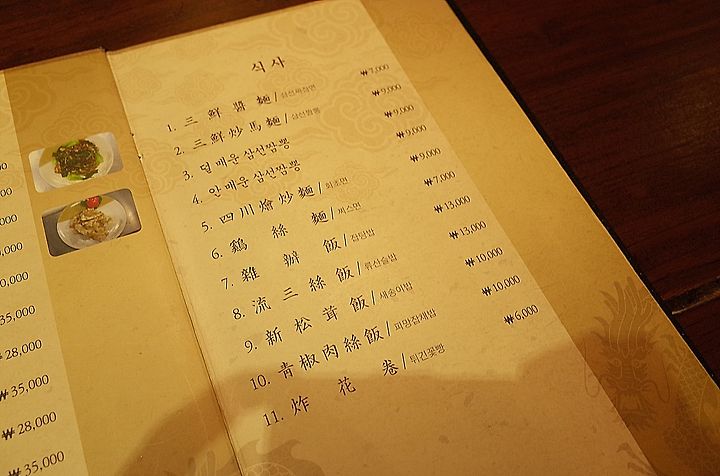 식사
1. 三鮮醬麵 / 삼선짜장면 ₩7,000
2. 三鮮炒馬麵 / 삼선짬뽕 ₩9,000
3. 덜 매운 삼선짬뽕 ₩9,000
4. 안 매운 삼선짬뽕 ₩9,000
5. 四川燴炒麵 / 회초면 ₩9,000
6. 鷄絲麵 / 찌스면 ₩7,000
7. 雜辦飯 / 잡탕밥 ₩13,000
8. 流三絲飯 / 류산슬밥 ₩13,000
9. 新松茸飯 / 새송이밥 ₩10,000
10. 靑椒肉絲飯 / 피망잡채밥 ₩10,000
11. 炸花卷 / 튀긴꽃빵 ₩6,000
35,000
₩28,000
₩35,000
₩28,000
₩35,000